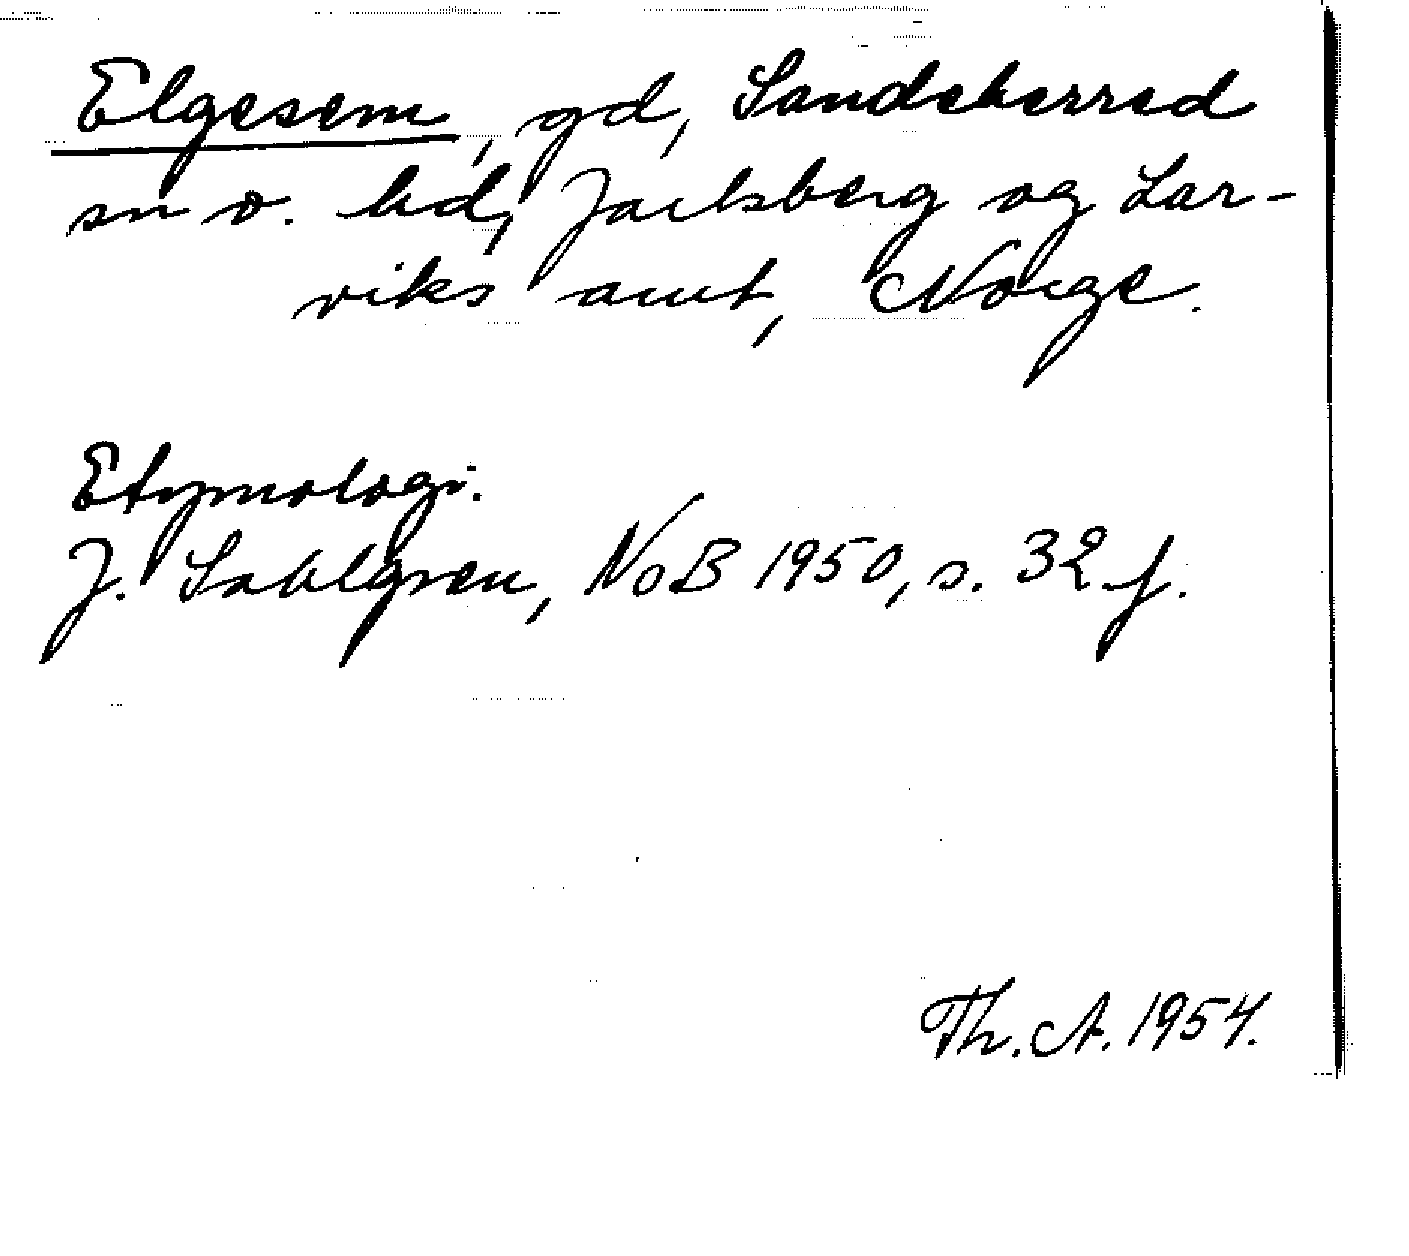 Elgesem, gd, Sandeherred
sn o. hd, Jarlsberg og Lar-
viks amt, Norge.
Etymologi.
J. Sahlgren, NoB 1950, s. 32 f.
Th. A. 1954.